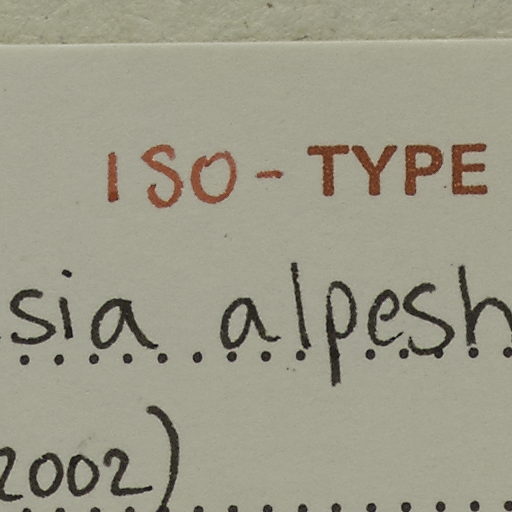 ISO-TYPE
sia alpesh
2002)